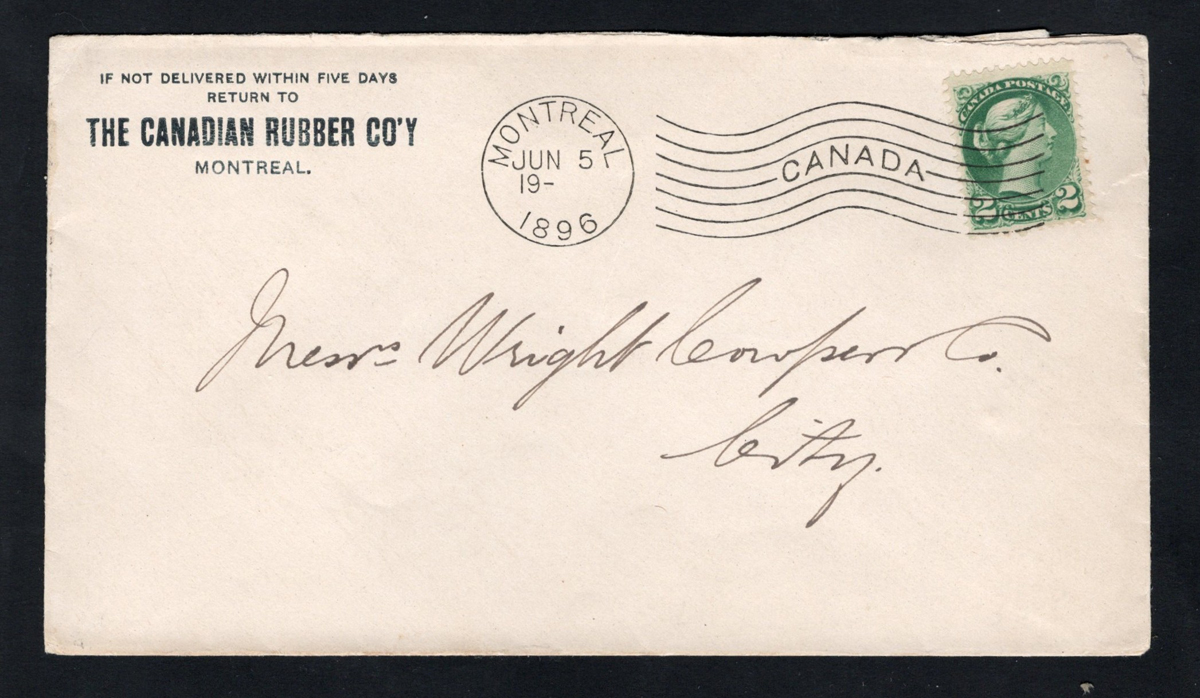 IF NOT DELIVERED WITHIN FIVE DAYS
RETURN TO
THE CANADIAN RUBBER CO'Y
MONTREAL.
MONTREAL
JUN 5
19-
1896
CANADA
CANADA POSTAGE
2 CENTS 2
Messrs Wright Cowperr Co.
City.